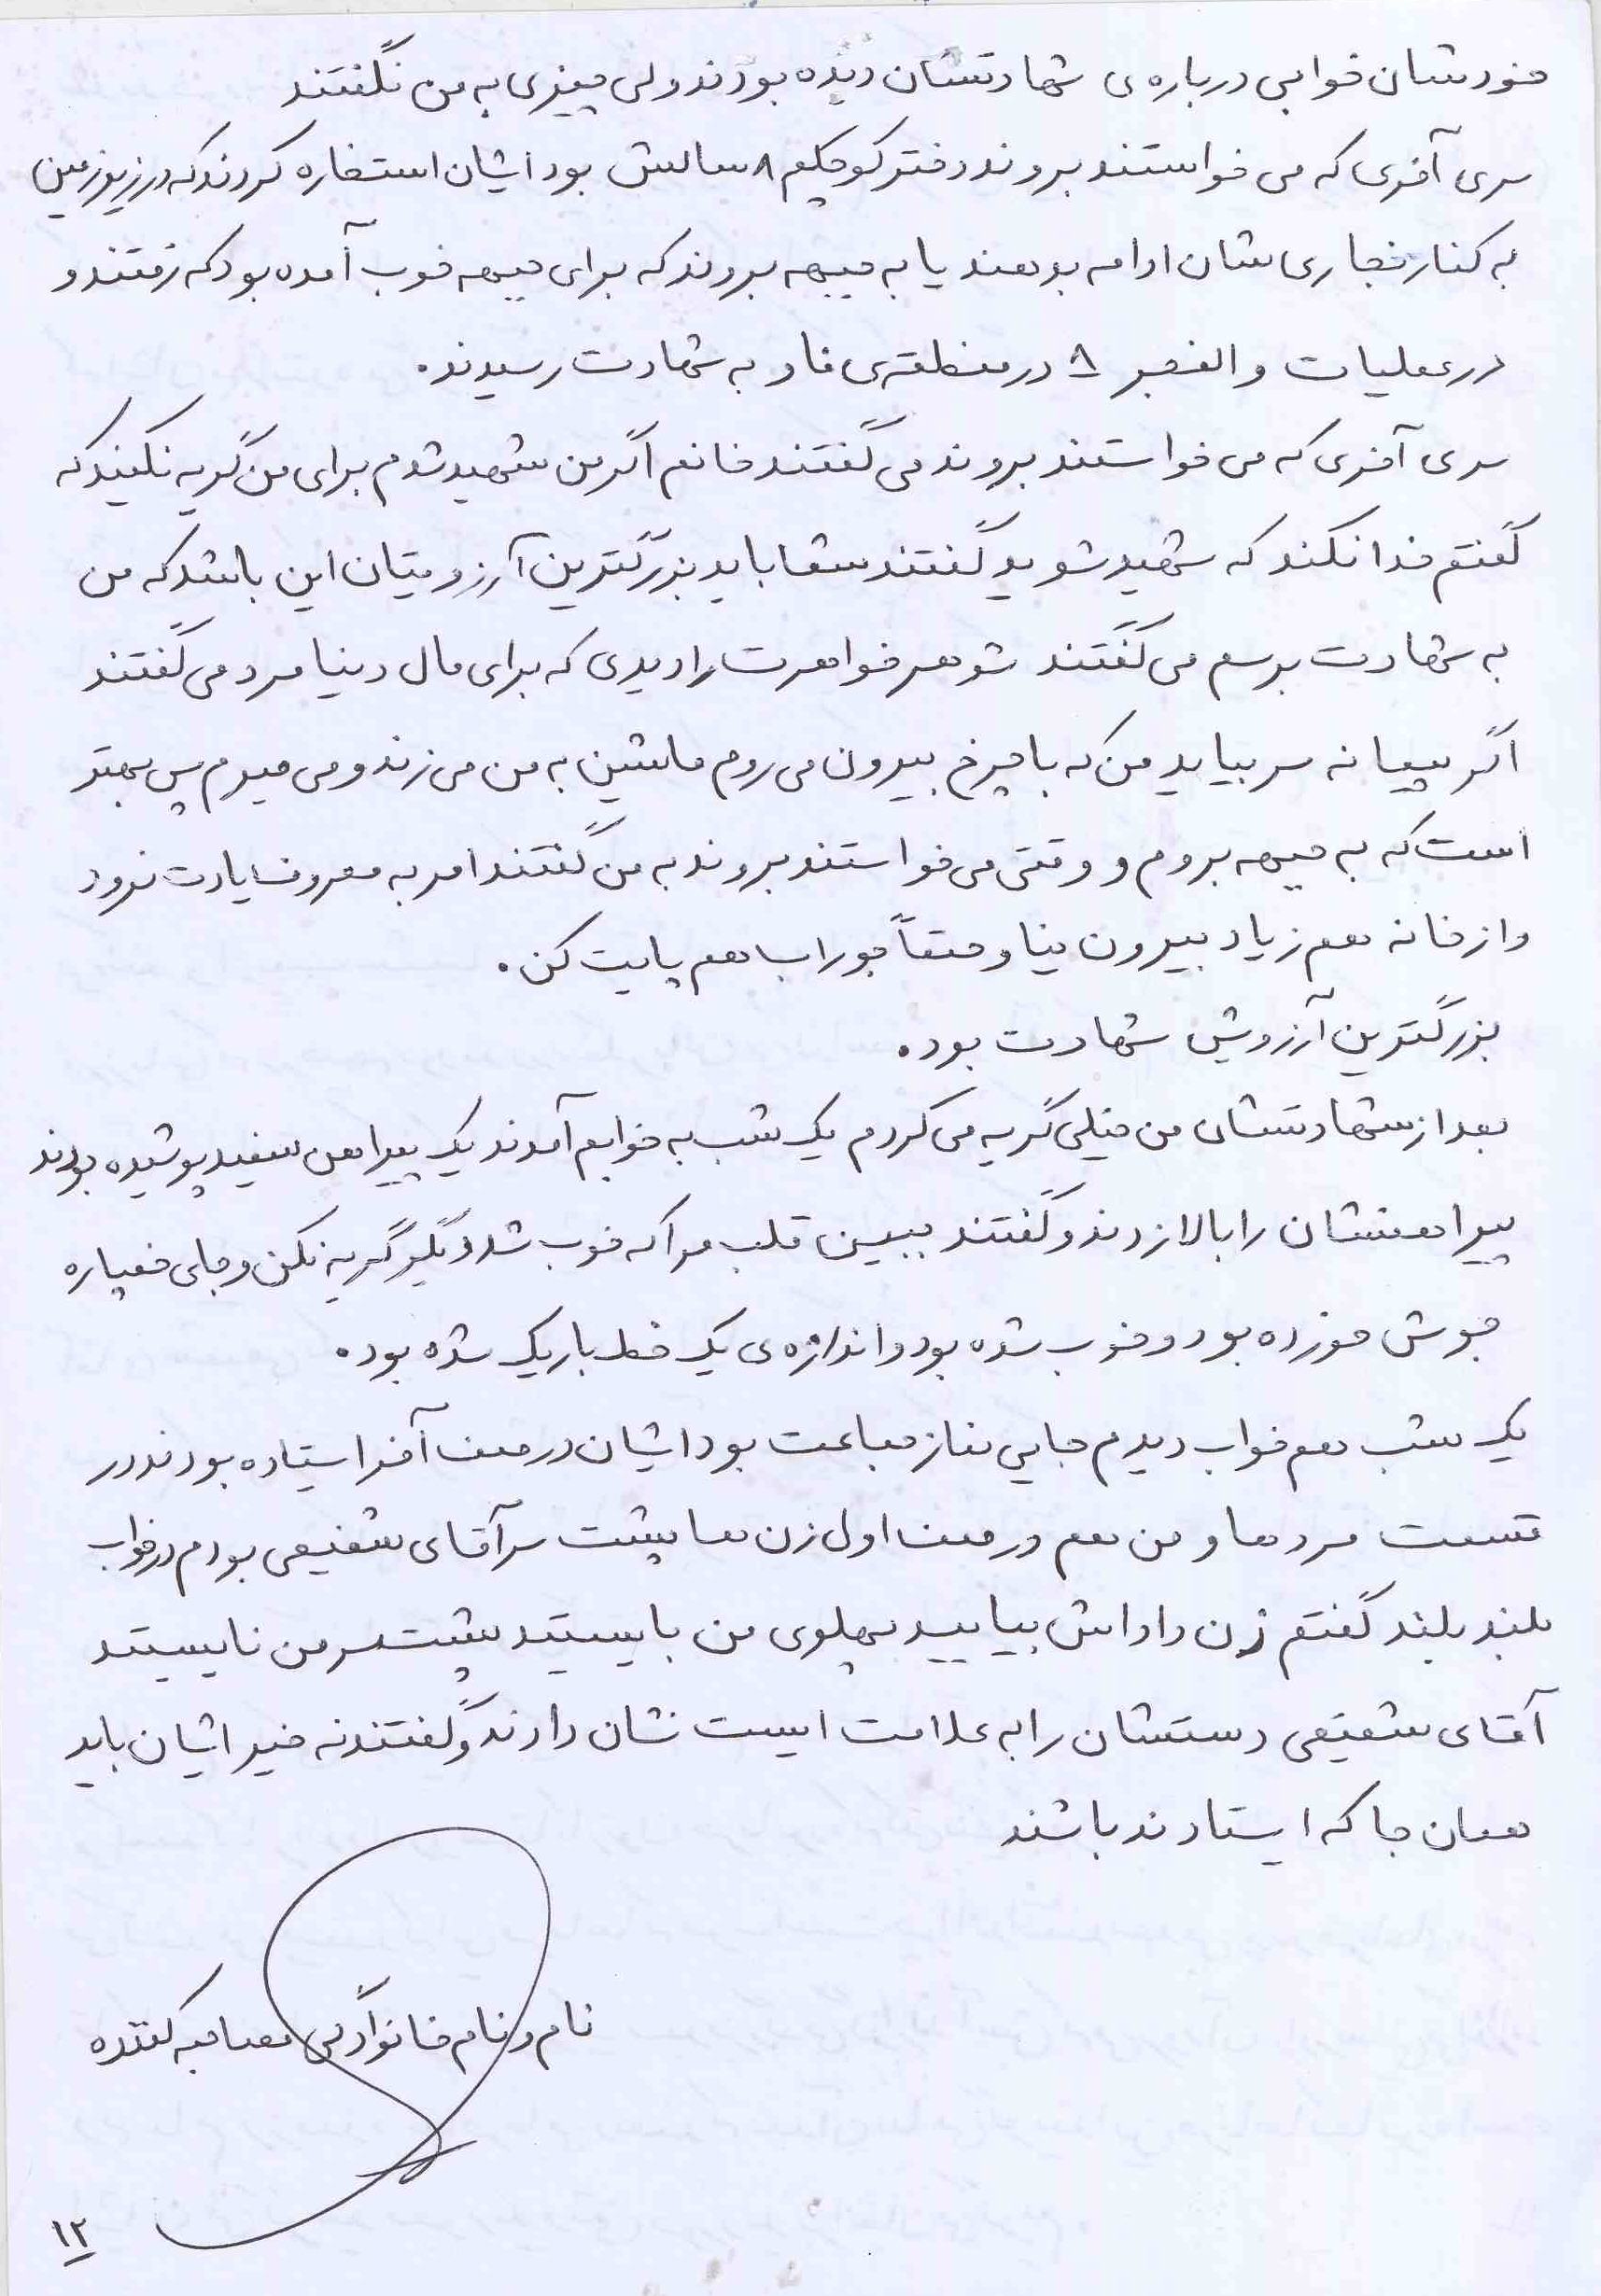 خودشان خوابی درباره ی شهادتشان دیده بودند ولی چیزی به من نگفتند
سری آخری که می خواستند بروند دختر کوچکم ۸ سالش بود ایشان استخاره کردند که در زیرزمین
به کنار نجاری شان ادامه بدهند یا به جبهه بروند که برای جبهه خوب آمده بود که رفتند و
در عملیات والفجر ۸ در منطقه ی فاو به شهادت رسیدند.
سری آخری که می خواستند بروند می گفتند خانم اگر من شهید شدم برای من گریه نکنید که
گفتم خدا نکند که شهید شوید گفتند شما باید بزرگترین آرزویتان این باشد که من
به شهادت برسم می گفتند شوهر خواهرت را دیدی که برای مال دنیا مرد می گفتند
اگر پیمانه سر بیاید من که با چرخ بیرون می روم ماشین به من می زند و می میرم پس بهتر
است که به جبهه بروم و وقتی می خواستند بروند به من گفتند امر به معروف یادت نرود
و از خانه هم زیاد بیرون نیا و حتماً جوراب هم پایت کن.
بزرگترین آرزویش شهادت بود.
بعد از شهادتشان من خیلی گریه می کردم یک شب به خوابم آمدند یک پیراهن سفید پوشیده بودند
پیراهنشان را بالا زدند و گفتند ببین قلب مرا که خوب شد دیگر گریه نکن و جای خمپاره
جوش خورده بود و خوب شده بود و اندازه ی یک خط باریک شده بود.
یک شب هم خواب دیدم جایی نماز جماعت بود ایشان در صف آخر ایستاده بودند در
قسمت مردها و من هم در صف اول زن ها پشت سر آقای شفیعی بودم در خواب
بلند بلند گفتم زن داداش بیایید پهلوی من بایستید پشت سر من نایستید
آقای شفیعی دستشان را به علامت ایست نشان دادند و گفتند نه خیر ایشان باید
همان جا که ایستادند باشند
نام و نام خانوادگی مصاحبه کننده
۱۲